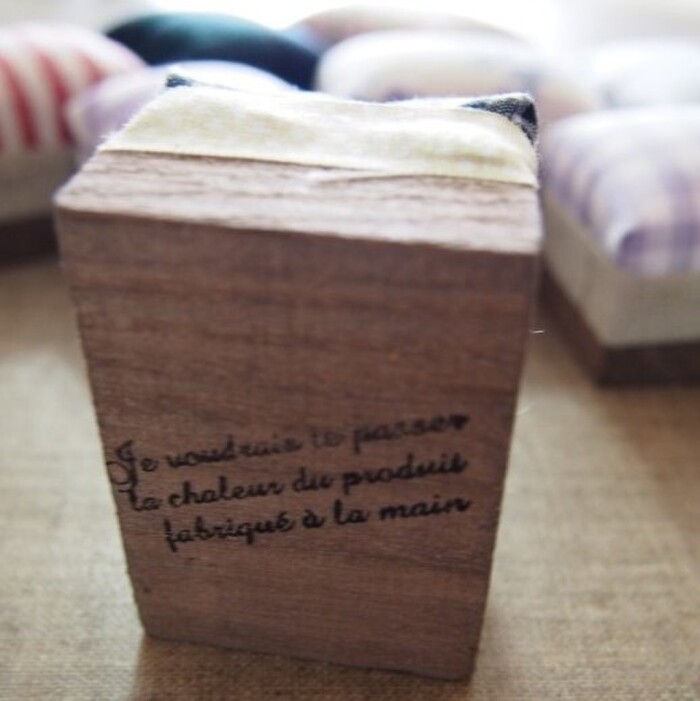 Je voudrais te passer
la chaleur du produit
fabriqué à la main